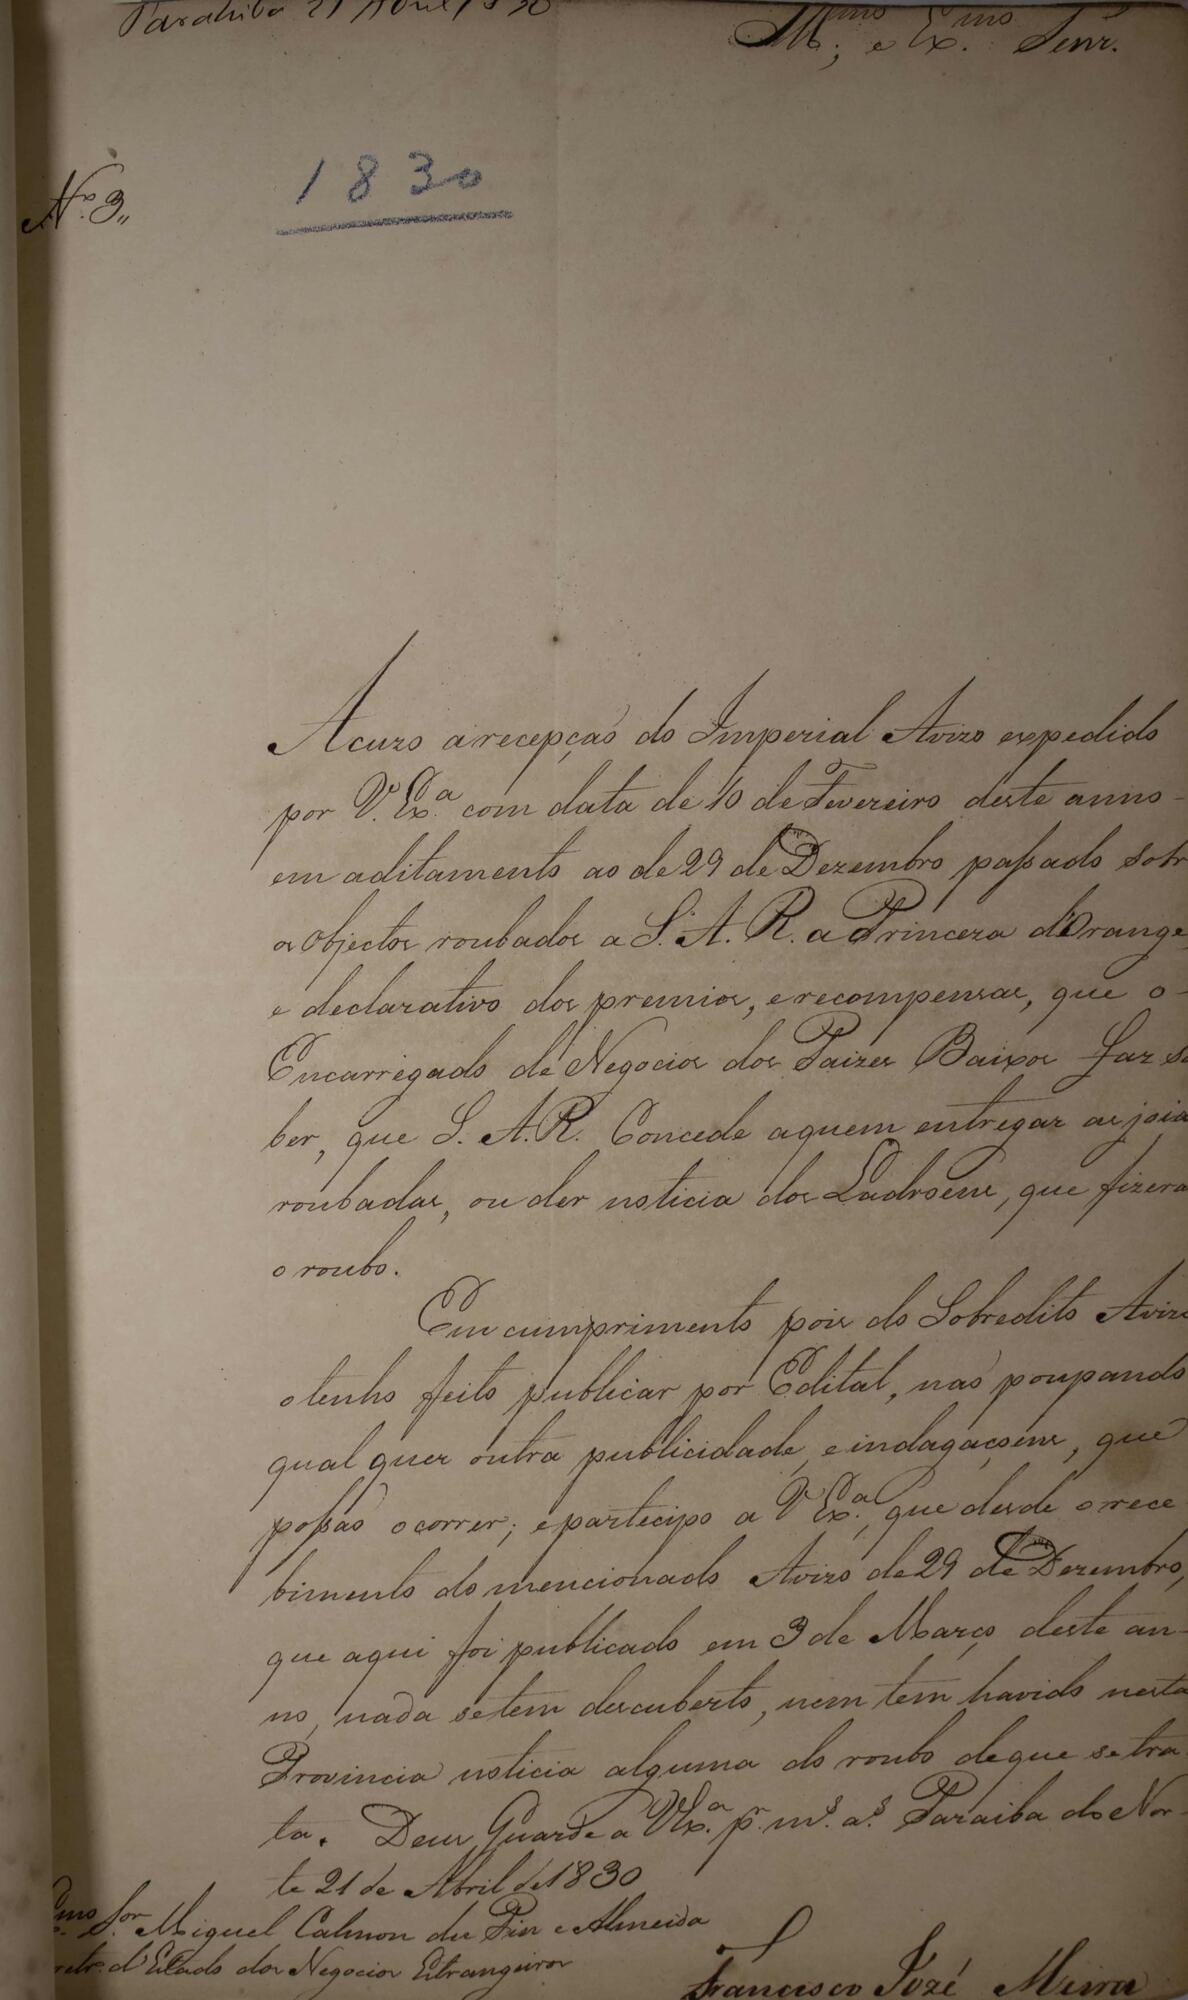 Parahiba 21 Abril 1830
Illmo, e Exmo. Senr.
1830
No. 3,,
Acuzo a recepção do Imperial Avizo expedido
por V. Exa. com data de 10 de Fevereiro deste anno
em aditamento ao de 29 de Dezembro passado sobr
os objectos roubados a S. A. R. a Princeza d'Orange,
e declarativo dos premios, e recompensas, que o
Encarregado de Negocios dos Paizes Baixos faz sa
ber, que S. A. R. Concede a quem entregar as joia
roubadas, ou der noticia dos Ladroens, que fizera
o roubo.
Em cumprimento pois do Sobredito Avizo
o tenho feito publicar por Edital, não poupando
qual quer outra publicidade, e indagaçoens, que
possão ocorrer; e partecipo a V. Exa., que desde o rece
bimento do mencionado Avizo de 29 de Dezembro,
que aqui foi publicado em 3 de Março deste an-
no, nada se tem descuberto, nem tem havido nesta
Provincia noticia alguma do roubo de que se tra
ta. Deus Guarde a V. Exa. pr. ms. as. Paraiba do Nor-
te 21 de Abril de 1830
mo. Sor. Miguel Calmon du Pin e Almeida
retr. d'Estado dos Negocios Estrangeiros
Francisco Jozé Meira